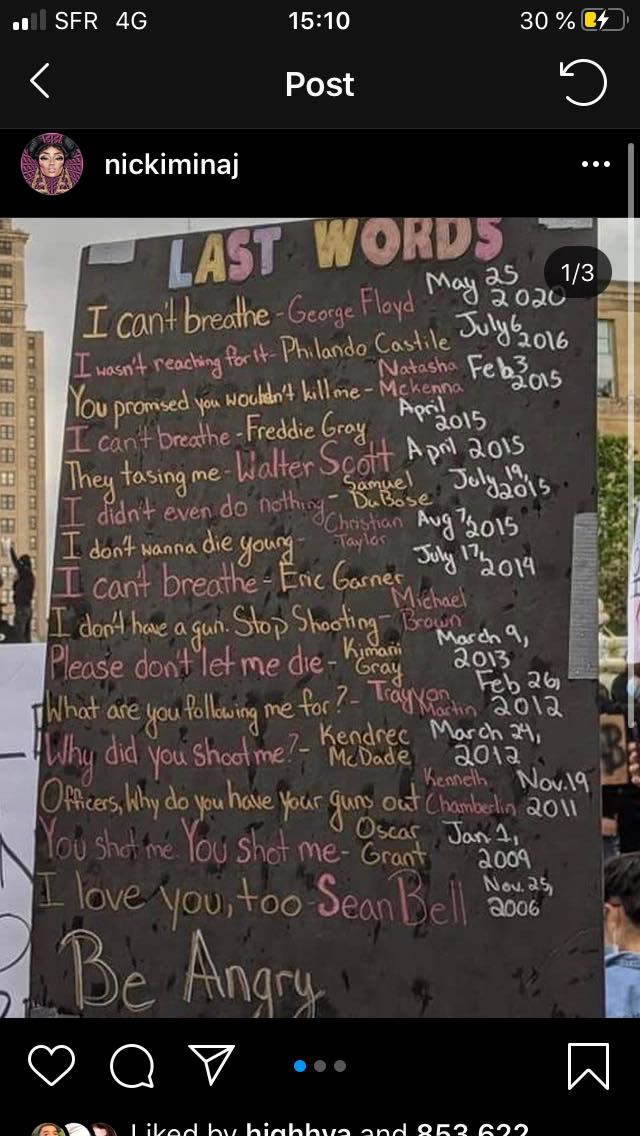 SFR 4G 15:10 30 %
Post
nickiminaj
LAST WORDS
1/3
I can't breathe - George Floyd May 25 2020
I wasn't reaching for it - Philando Castile July 6, 2016
You promised you wouldn't kill me - Natasha Mckenna Feb 3, 2015
I can't breathe - Freddie Gray April 2015
They tasing me - Walter Scott April 2015
I didn't even do nothing - Samuel DuBose July 19, 2015
I don't wanna die young - Christian Taylor Aug 7, 2015
I can't breathe - Eric Garner July 17, 2014
I don't have a gun. Stop Shooting - Michael Brown
Please don't let me die - Kimani Gray March 9, 2013
What are you following me for? - Trayvon Martin Feb 26, 2012
Why did you shoot me? - Kendrec McDade March 24, 2012
Officers, Why do you have your guns out Kenneth Chamberlin Nov. 19 2011
You shot me. You shot me - Oscar Grant Jan. 1, 2009
I love you, too - Sean Bell Nov. 25, 2006
Be Angry
Liked by highhya and 853 622